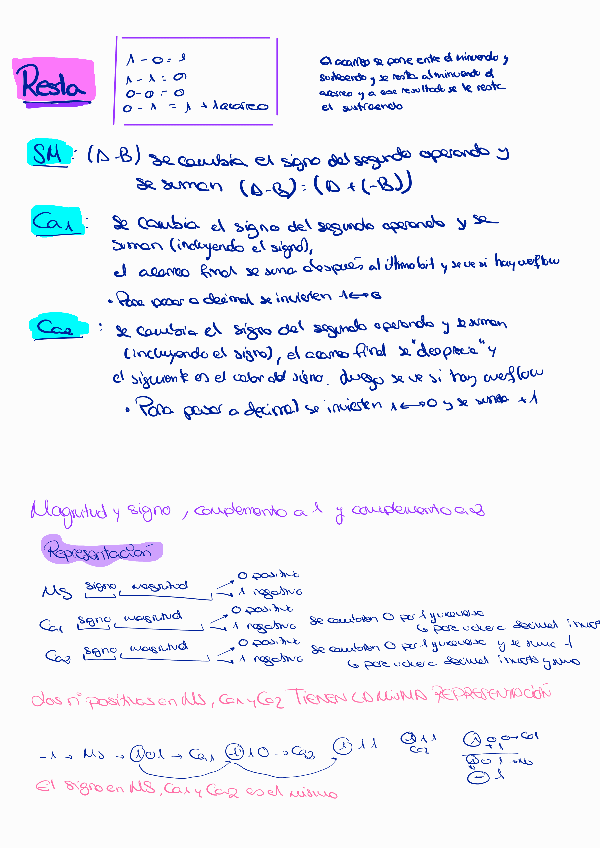 Resta
1 - 0 = 1
1 - 1 = 0
0 - 0 = 0
0 - 1 = 1 + 1 acarreo
El acarreo se pone entre el minuendo y
sustraendo y se resta al minuendo el
acarreo y a ese resultado se le resta
el sustraendo
SM : (A-B) se cambia el signo del segundo operando y
se suman (A-B) = (A + (-B))
Ca1 : se cambia el signo del segundo operando y se
suman (incluyendo el signo),
el acarreo final se suma después al último bit y se ve si hay overflow
• Para pasar a decimal se invierten 1↔0
Ca2 : se cambia el signo del segundo operando y se suman
(incluyendo el signo), el acarreo final se "desprecia" y
el siguiente es el valor del signo. Luego se ve si hay overflow
• Para pasar a decimal se invierten 1↔0 y se suma +1
Magnitud y signo, complemento a 1 y complemento a 2
Representación
MS signo, magnitud → 0 positivo
→ 1 negativo
Ca1 signo, magnitud → 0 positivo
→ 1 negativo se cambian 0 por 1 y viceversa
↳ para volver a decimal invierto
Ca2 signo, magnitud → 0 positivo
→ 1 negativo se cambian 0 por 1 y viceversa y se suma 1
↳ para volver a decimal invierto y sumo
los nº positivos en MS, Ca1 y Ca2 TIENEN LA MISMA REPRESENTACIÓN
-1 → MS → 101 → Ca1 110 → Ca2 111
111
Ca2
100 → Ca1
+1
101 → MS
- 1
El signo en MS, Ca1 y Ca2 es el mismo